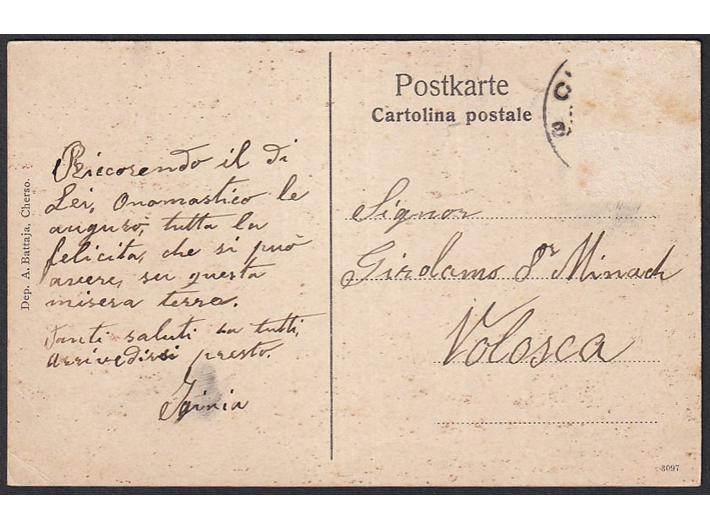 Dep. A. Battaja, Cherso.
Riccorendo il di
Lei, Onomastico le
auguro, tutta la
felicita, che si può
avere, su questa
misera terra.
Tanti saluti a tutti,
arrivedirsi presto.
Postkarte
Cartolina postale
Signor
Girolamo Dr Minach
Volosca
8097